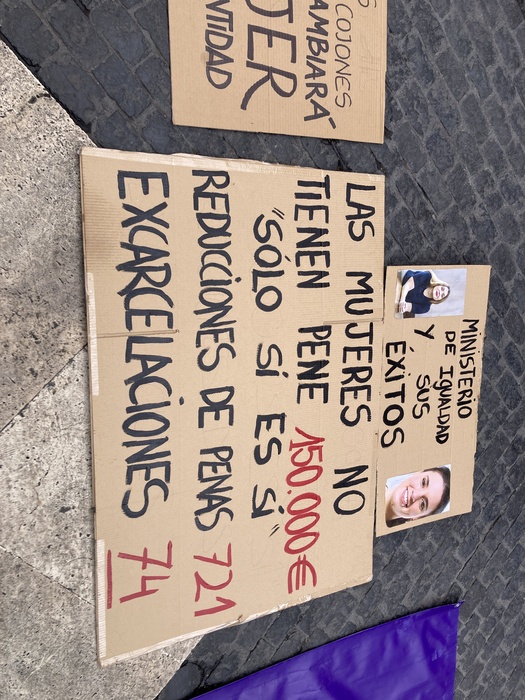 COJONES
AMBIARÁ
JER
NTIDAD
MINISTERIO
DE IGUALDAD
Y SUS
ÉXITOS
LAS MUJERES NO
TIENEN PENE 150.000€
"SÓLO SÍ ES SÍ"
REDUCCIONES DE PENAS 721
EXCARCELACIONES 74